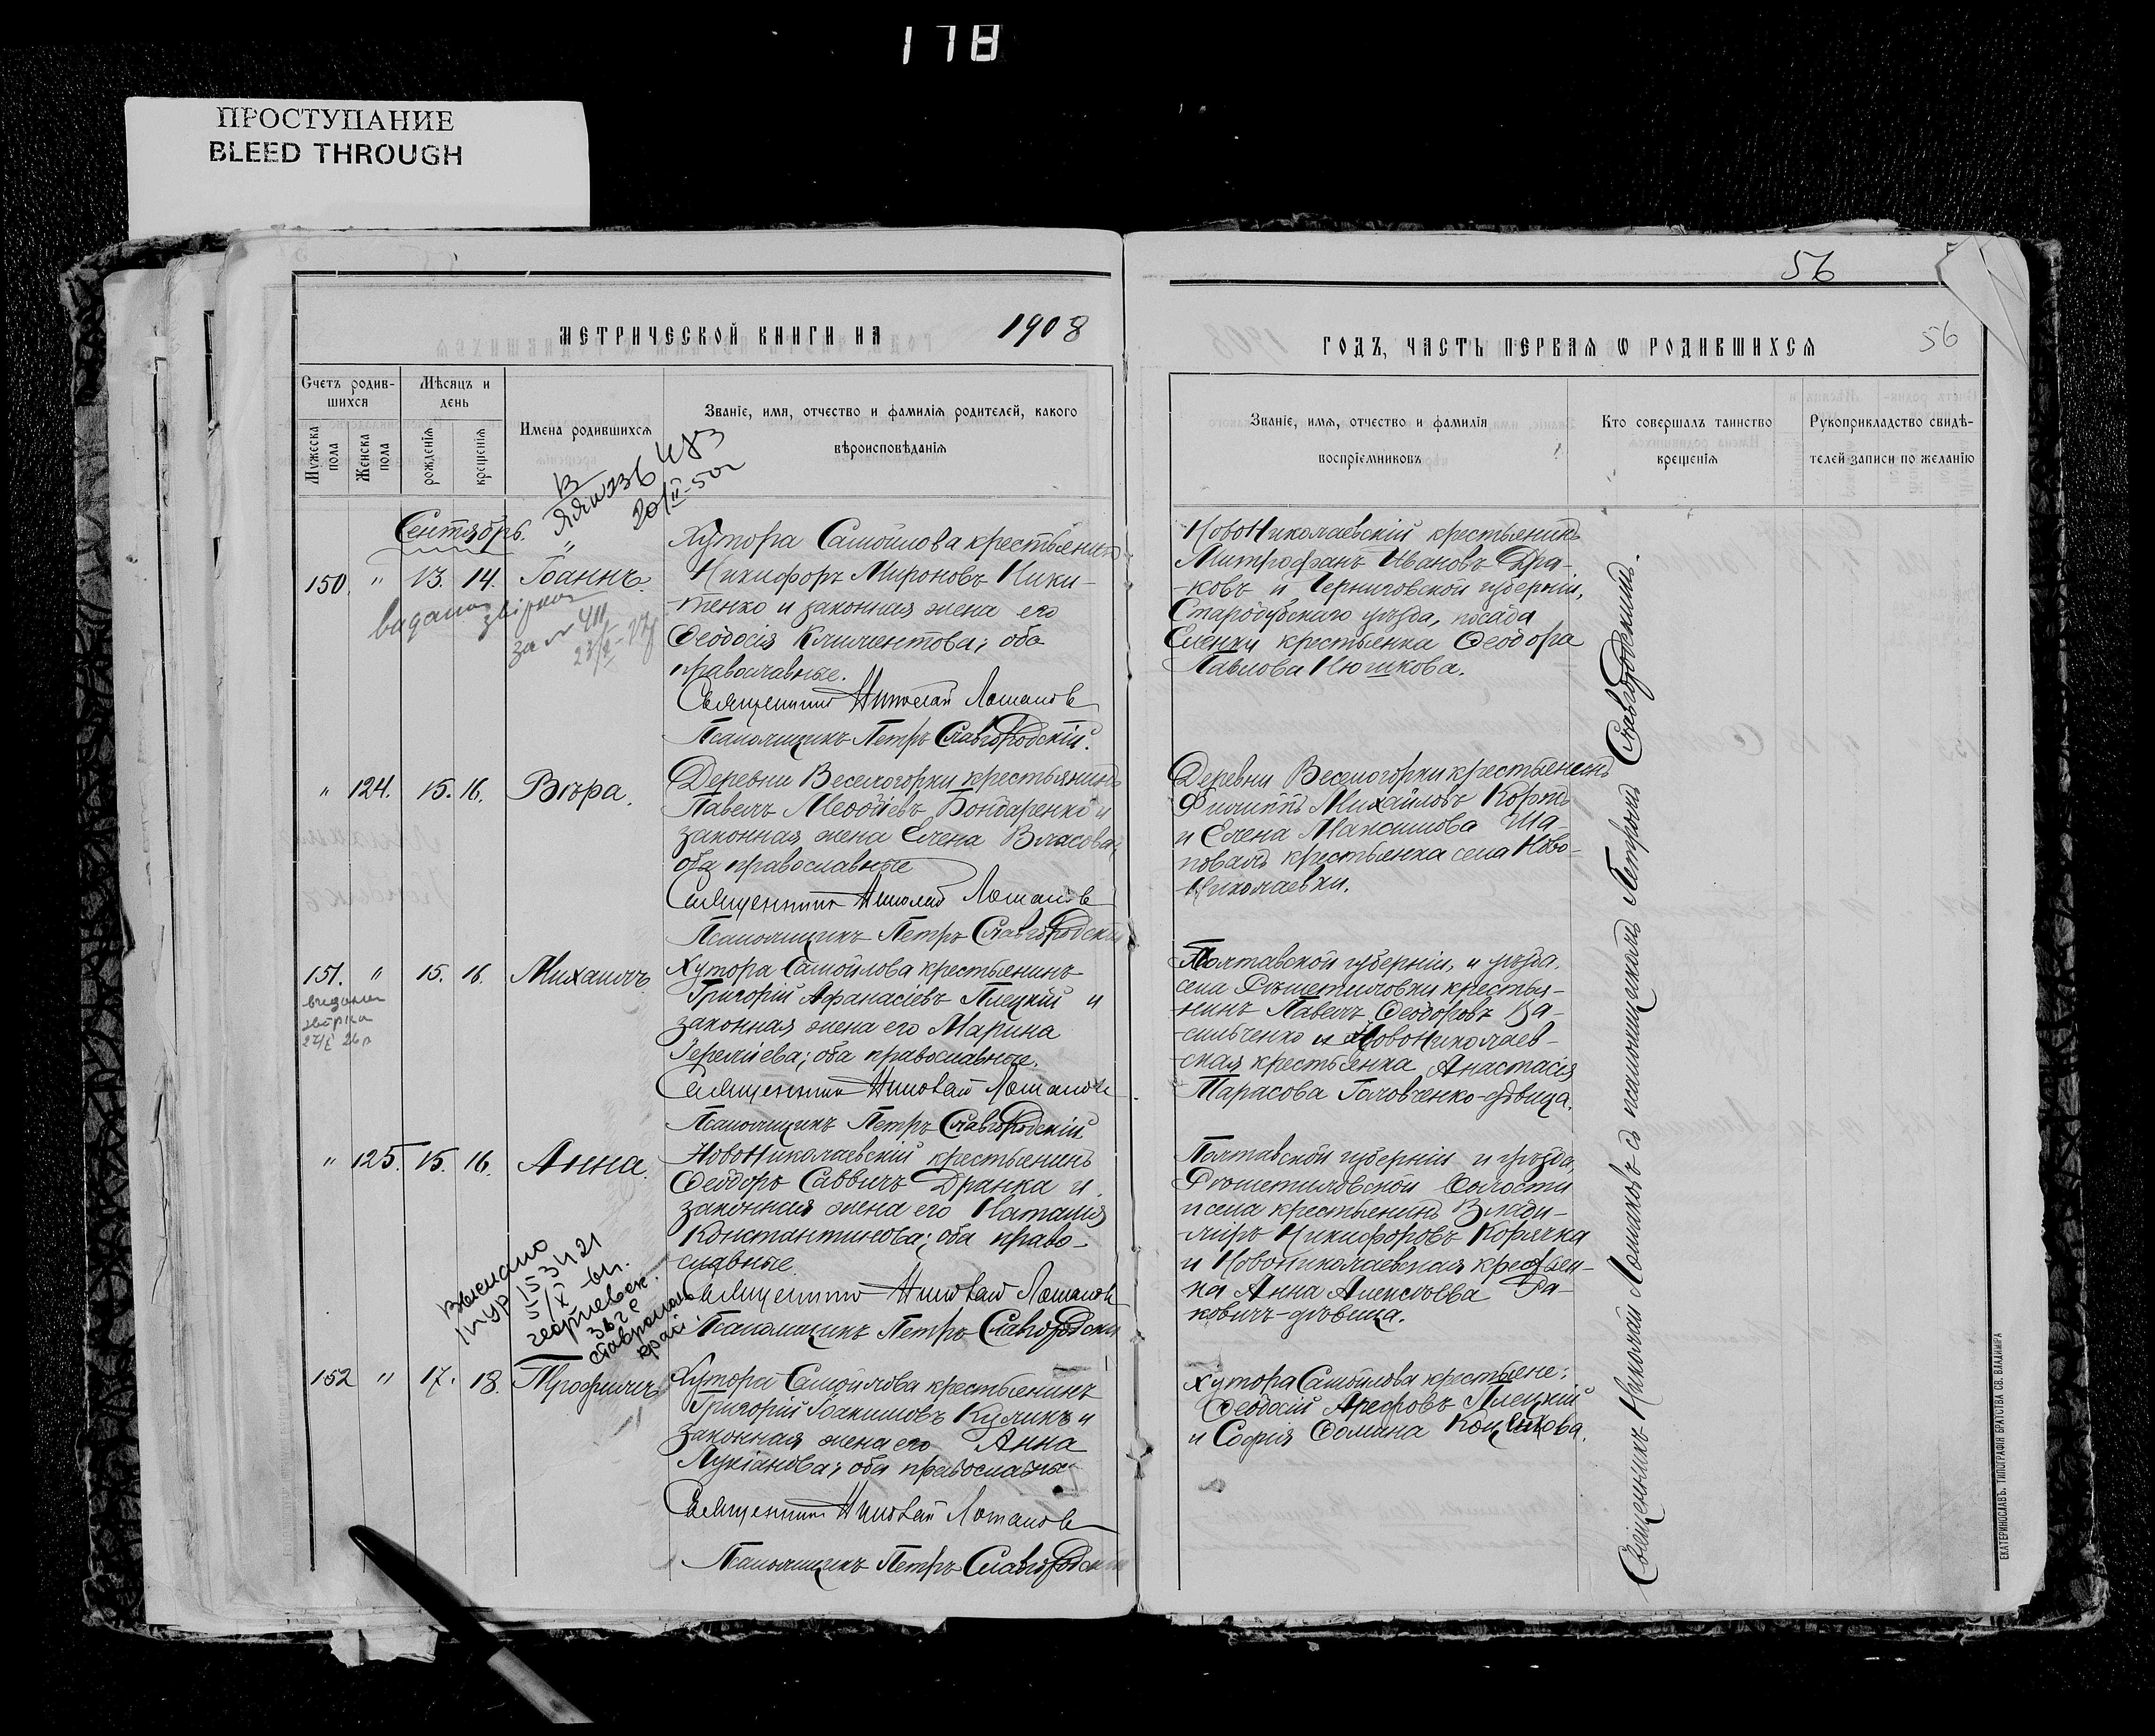 178
ПРОСТУПАНИЕ
BLEED THROUGH
56
56
МЕТРИЧЕСКОЙ КНИГИ НА 1908
ГОДЪ, ЧАСТЬ ПЕРВАЯ Ѡ РОДИВШИХСЯ
Счетъ родив-
шихся
Мужеска пола
Женска пола
Мѣсяцъ и
день
рожденія
крещенія
Имена родившихся
Званіе, имя, отчество и фамилія родителей, какого
вѣроисповѣданія
Званіе, имя, отчество и фамилія
воспріемниковъ
Кто совершалъ таинство
крещенія
Рукоприкладство свидѣ-
телей записи по желанію
20/II-50г
Сентябрь.
150 " 13. 14. Іоаннъ.
Хутора Самойлова крестьянинъ
Никифоръ Мироновъ Ники-
тенко и законная жена его
Ѳеодосія Климентова; оба
православные.
Священникъ Николай Ломаковъ
Псаломщикъ Петръ Славгородскій.
НовоНиколаевскій крестьянинъ
Митрофанъ Ивановъ Дра-
-ковъ и Черниговской губерніи,
Стародубскаго уѣзда, посада
Еленки крестьянка Ѳеодора
Павлова Июшкова.
за №
" 124. 15. 16. Вѣра.
Деревни Веселогорки крестьянинъ
Павелъ Меѳодіевъ Бондаренко и
законная жена Елена Власова;
оба православные
Священникъ Николай Ломаковъ
Псаломщикъ Петръ Славгородскій
Деревни Веселогорки крестьянинъ
Филиппъ Михайловъ Коржъ
и Елена Максимова Ша-
повалъ крестьянка села Ново-
Николаевки.
151. " 15. 16. Михаилъ
Хутора Самойлова крестьянинъ
Григорій Аѳанасіевъ Плецкій и
законная жена его Марина
Іереміева; оба православные.
Священникъ Николай Ломаковъ
Псаломщикъ Петръ Славгородскій
Полтавской губерніи, и уѣзда,
села Рѣшетиловки крестья-
нинъ Павелъ Ѳеодоровъ Ва-
сильченко и НовоНиколаев-
ская крестьянка Анастасія
Тарасова Головченко-дѣвица.
" 125. 15. 16. Анна.
НовоНиколаевскій крестьянинъ
Ѳеодоръ Саввичъ Дранка и
законная жена его Наталія
Константинова; оба право-
славные.
Священникъ Николай Ломаковъ
Псаломщикъ Петръ Славгородскій
Полтавской губерніи и уѣзда,
Рѣшетиловской волости
и села крестьянинъ Влади-
міръ Никифоровъ Корячка
и Новониколаевская крестьян-
ка Анна Алексѣева Ра-
ковичъ-дѣвица.
152 " 17. 18. Трофимъ
Хутора Самойлова крестьянинъ
Григорій Іоакимовъ Куликъ и
законная жена его Анна
Лукіанова; оба православные
Священникъ Николай Ломаковъ
Псаломщикъ Петръ Славгородскій
Хутора Самойлова крестьяне:
Ѳеодосій Ареѳовъ Плецкій
и Софія Ѳомина
Священникъ Николай Ломаковъ съ псаломщикомъ Петромъ Славгородскимъ.
ЕКАТЕРИНОСЛАВЪ. ТИПОГРАФІЯ БРАТСТВА СВ. ВЛАДИМІРА